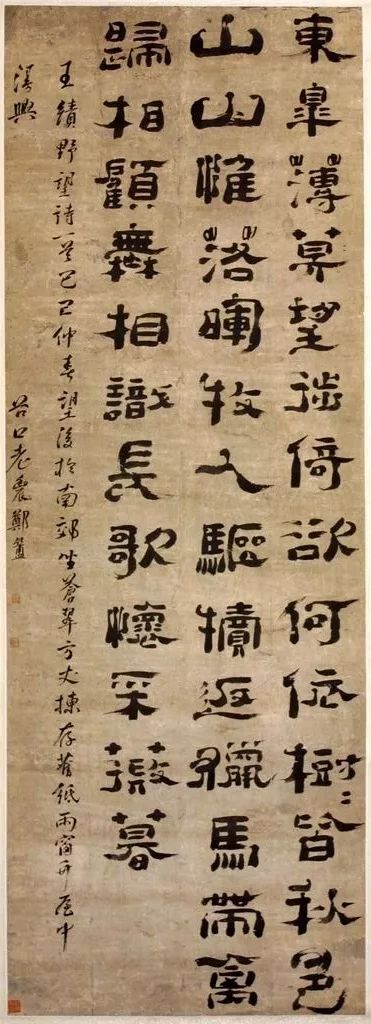 東皋薄莫望徙倚欲何依樹〻皆秋色
山山惟落暉牧人驅犢返獵馬帶禽
歸相顧無相識長歌懷采薇暮
王績野望詩一首己巳仲春望後於南郊坐蒼翠方丈揀存舊紙雨窗中
漫興
谷口老農鄭簠